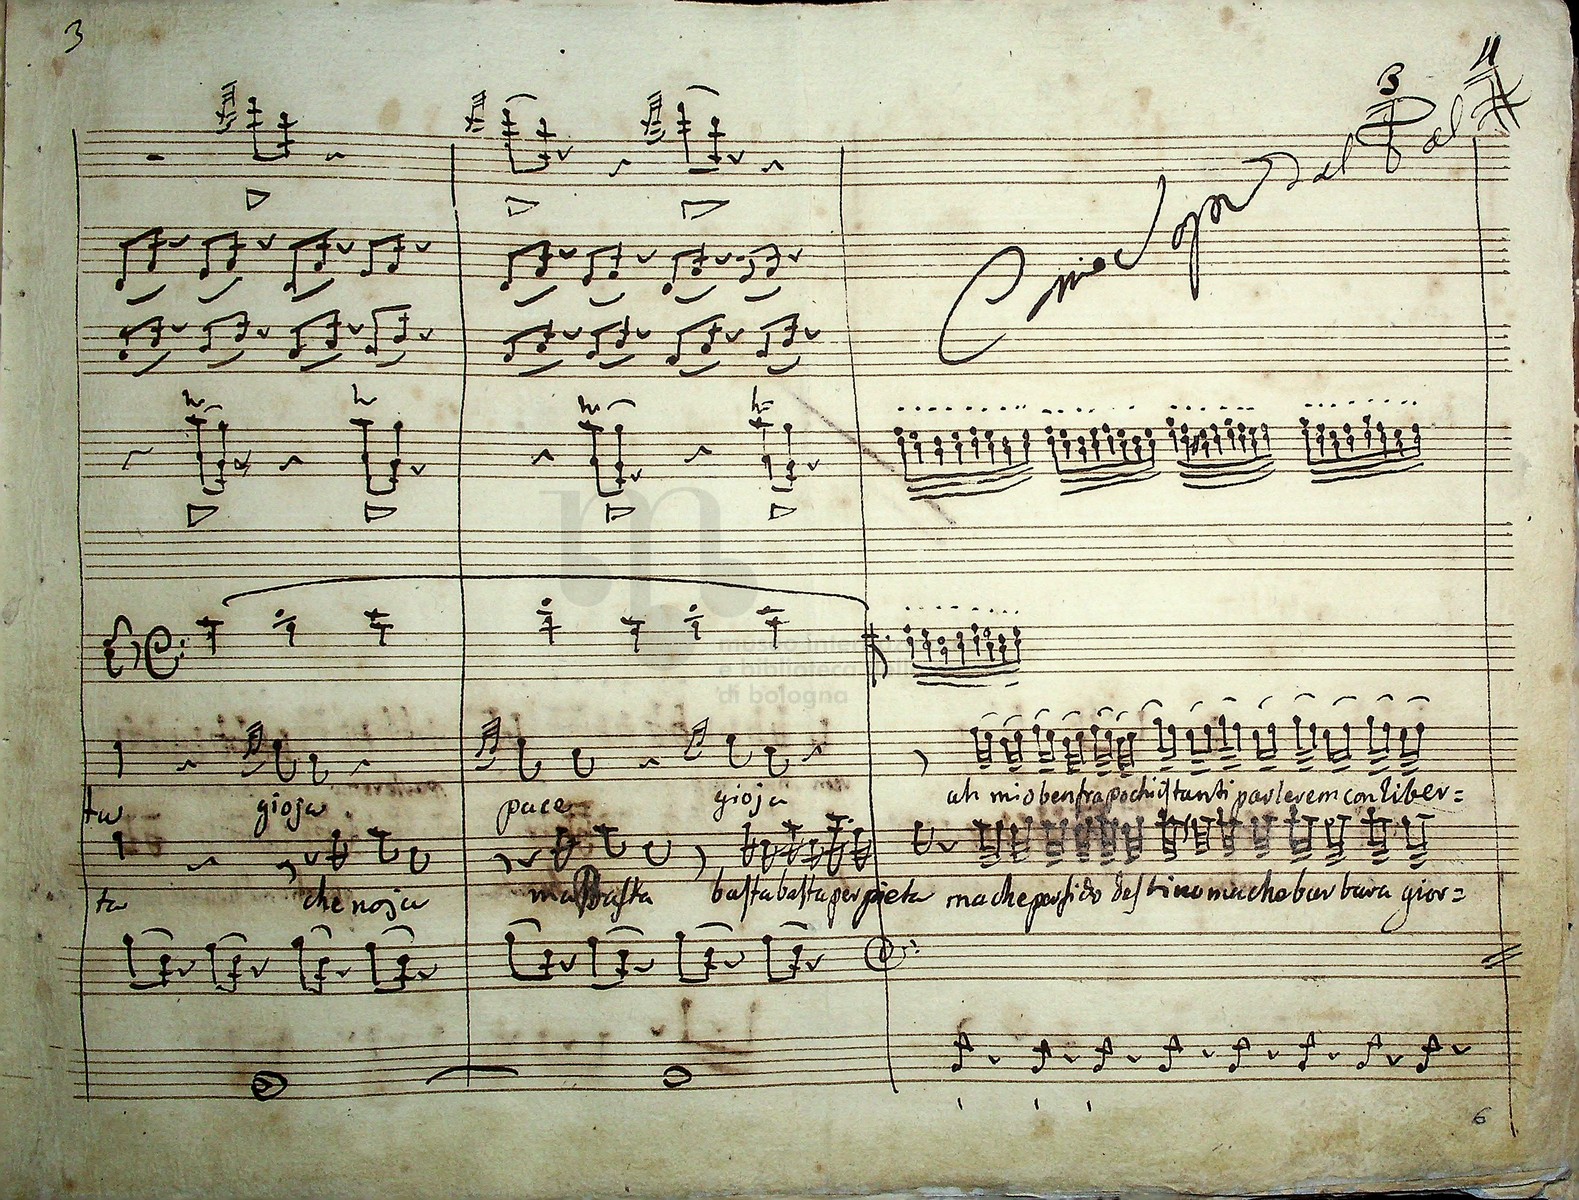 3
3 4
Come Sopra dal al
museo inte
e biblioteca
di bologna
ta gioja pace gioja ah mio ben fra pochi istanti parlerem con liber=
ta che noja ma basta basta basta per pieta ma che perfido destino ma che barbara gior=
6